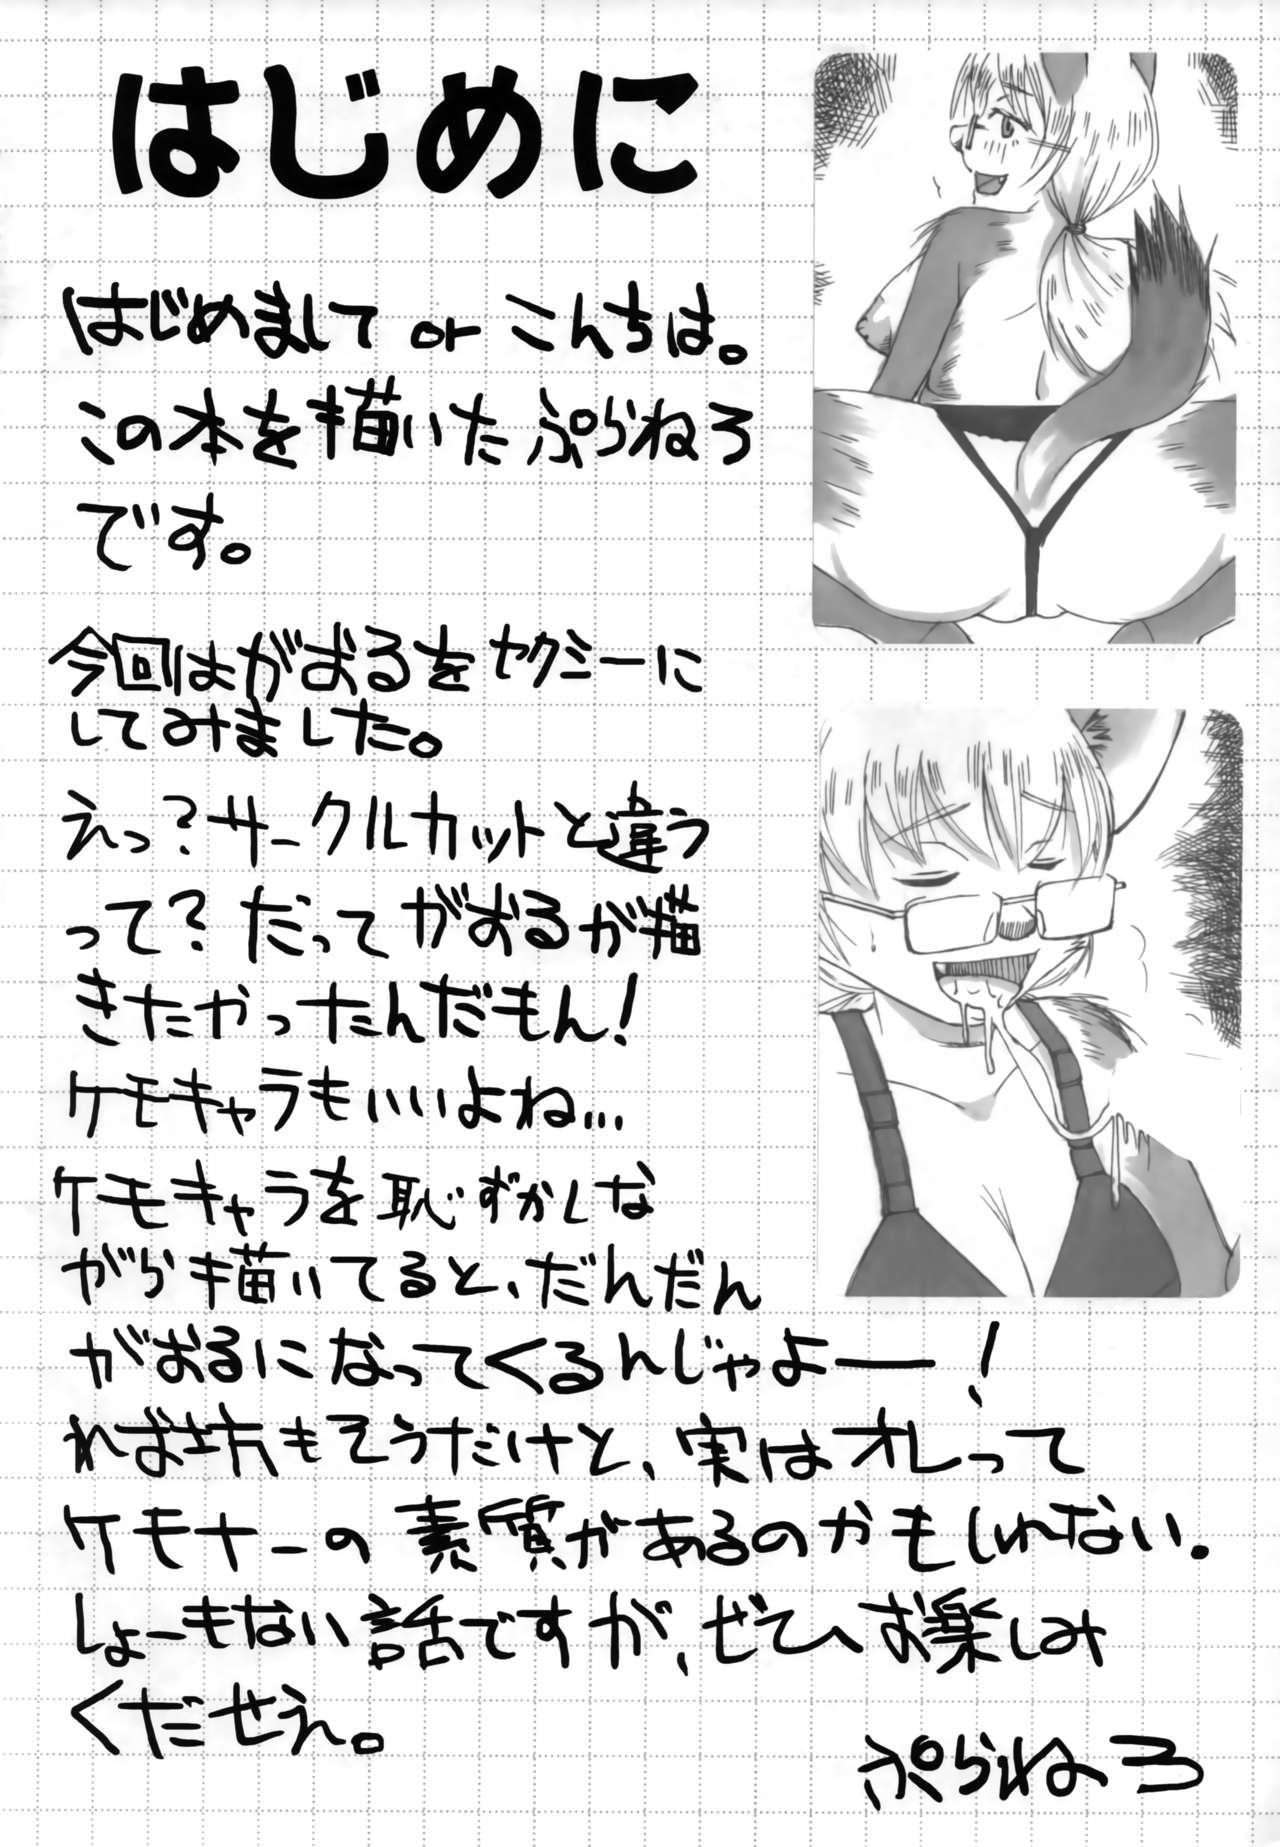 はじめに
はじめまして or こんちは。
この本を描いた ぷらねろ
です。
今回はがおるをセクシーに
してみました。
えっ？サークルカットと違う
って？だってがおるが描
きたかったんだもん！
ケモキャラもいいよね…
ケモキャラを恥ずかしな
がら描いてると、だんだん
がおるになってくるんじゃよー！
ねば坊もそうだけど、実はオレって
ケモナーの素質があるのかもしれない。
しょーもない話ですが、ぜひお楽しみ
くだせえ。
ぷらねろ